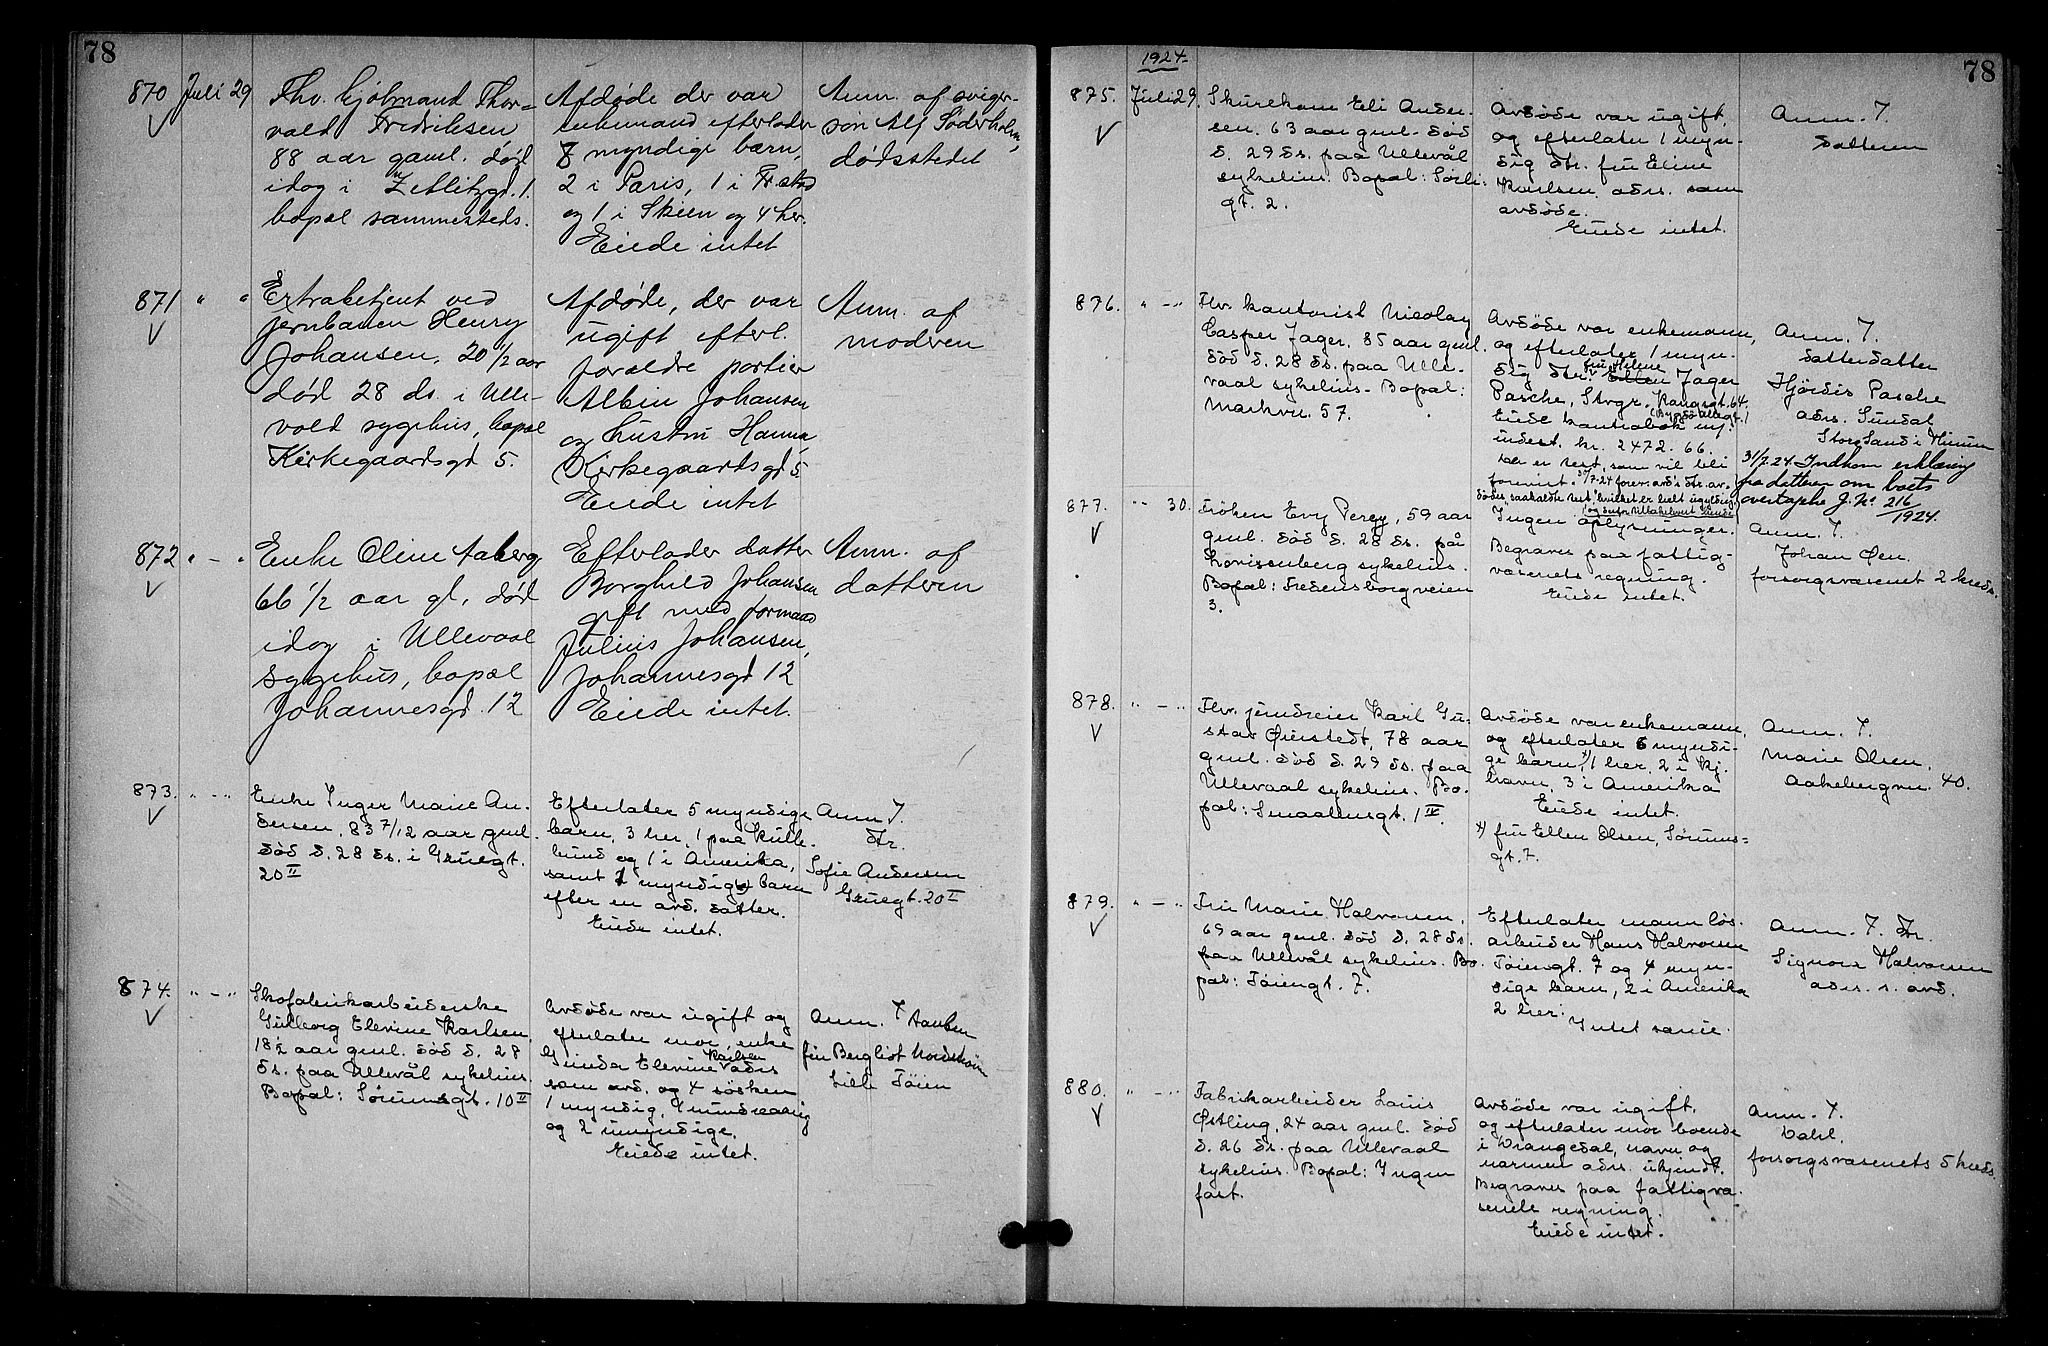 78
870 Juli 29
Fhv. kjøbmand Thor=
vald Fredriksen
88 aar gaml. død
idag i Zetlitzgd. 1.
bopæl sammesteds.
Afdøde der var
enkemand efterlader
8 myndige børn,
2 i Paris, 1 i Fr.stad
og 1 i Skien og 4 her.
Eiede intet
Anm. af sviger-
søn Alf Söderholm,
dødsstedet
871 " "
Extrabetjent ved
jernbanen Henry
Johansen, 20 1/2 aar
død 28 ds. i Ulle-
vold sygehus, bopæl
Kirkegaardsgd 5.
Afdøde, der var
ugift efterl.
forældre portier
Albin Johansen
og hustru Hanna
Kirkegaardsgd 5
Eiede intet
Anm. af
moderen
872 " - "
Enke Oline Aaberg
66 1/2 aar gl, død
idag i Ullevaal
sygehus, bopæl
Johannesgd. 12
Efterlader datter
Borghild Johansen
gift med formand
Julius Johansen,
Johannesgd 12
Eiede intet.
Anm. af
datteren
873. " - "
Enke Inger Marie An-
dersen, 83 7/12 aar gml.
død d. 28 ds. i Gruegt.
20 II
Efterlater 5 myndige
barn, 3 her, 1 paa Kulle-
bund og 1 i Amerika,
samt 1 myndig barn
efter en avd. datter.
Eiede intet.
Anm. 7.
Dtr.
Sofie Andersen
Gruegt. 20 II
874. " - "
Skofabrikarbeiderske
Gulborg Elevine Karlsen,
18 1/2 aar gml. død d. 28
ds. paa Ullevål sykehus.
Bopæl: Sörumsgt. 10 II
Avdøde var ugift og
efterlater mor, enke
Gunda Elevine Karlsen adrs
som avd. og 4 søsken
1 myndig, 1 mindreaarig
og 2 umyndige.
Eiede intet.
Anm. 7 tanten
fru Bergliot
Lille Tøien
1924.
78
875. Juli 29.
Eli Ander-
sen. 63 aar gml. død
d. 29 ds. paa Ullevål
sykehus. Bopæl: Sörli-
gt. 2.
Avdøde var ugift,
og efterlater 1 myn-
dig dtr. fru Eline
Karlsen, adrs. som
avdøde.
Eiede intet.
Anm. 7.
datteren
876. " - "
Fhv. kontorist Nicolay
Casper Jager, 85 aar gml.
död d. 28 ds. paa Ulle-
vaal sykehus. Bopæl:
Markvn. 57.
Avdøde var enkemann,
og efterlater 1 myn-
dig dtr. fru Helene Jager
Pasche, Strgr.
Eiede kontrabok m/
indest. kr. 2472. 66.
som vil bli
Anm. 7.
datterdatter
Hjördis Pasche
adrs. Sundal
Store Sand i Hurum
31/7.24. Indkom erklæring
fra datteren om boets
overtagelse J. No. 216/1924.
877. " - 30.
Fröken Evy Percy, 59 aar
gml. död d. 28 ds. på
Lovisenberg sykehus.
Bopæl: Fredensborgveien
3.
Ingen oplysninger.
Begraves paa fattig-
væsenets regning.
Eiede intet.
Anm. 7.
Johan Øen.
forsorgsvæsenet 2 kreds.
878. " - "
Fhv. Karl Gu-
stav Qvistedt, 78 aar
gml. död d. 29 ds. paa
Ullevaal sykehus. Bo-
pæl: Smaalensgt. 1 IV.
Avdøde var enkemann,
og efterlater 6 myndi-
ge barn x) 1 her, 2 i Kj.
havn, 3 i Amerika
Eiede intet.
x) fru Ellen Olsen, Sörums-
gt. 7.
Anm. 7.
Marie Olsen,
Aakebergvn. 40.
879. " - "
Fru Marie Halvorsen,
69 aar gml. död d. 28 ds.
paa Ullevål sykehus. Bo-
pæl: Töiengt. 7.
Efterlater mann løs-
arbeider Hans Halvorsen
Töiengt. 7 og 4 myn-
dige barn, 2 i Amerika
2 her.
Intet særeie.
Anm. 7. Dtr.
Signora Halvorsen
adrs. s. avd.
880. " - "
Fabrikarbeider Louis
Østling, 24 aar gml. död
d. 26 ds. paa Ullevaal
sykehus. Bopæl: Ingen
fast.
Avdøde var ugift.
og efterlater mor boende
i Drangedal, navn og
nærmere adrs. ukjendt.
Begraves paa fattigvæ-
senets regning.
Eiede intet.
Anm. 7.
Dahl.
forsorgsvæsenets 5 kreds.